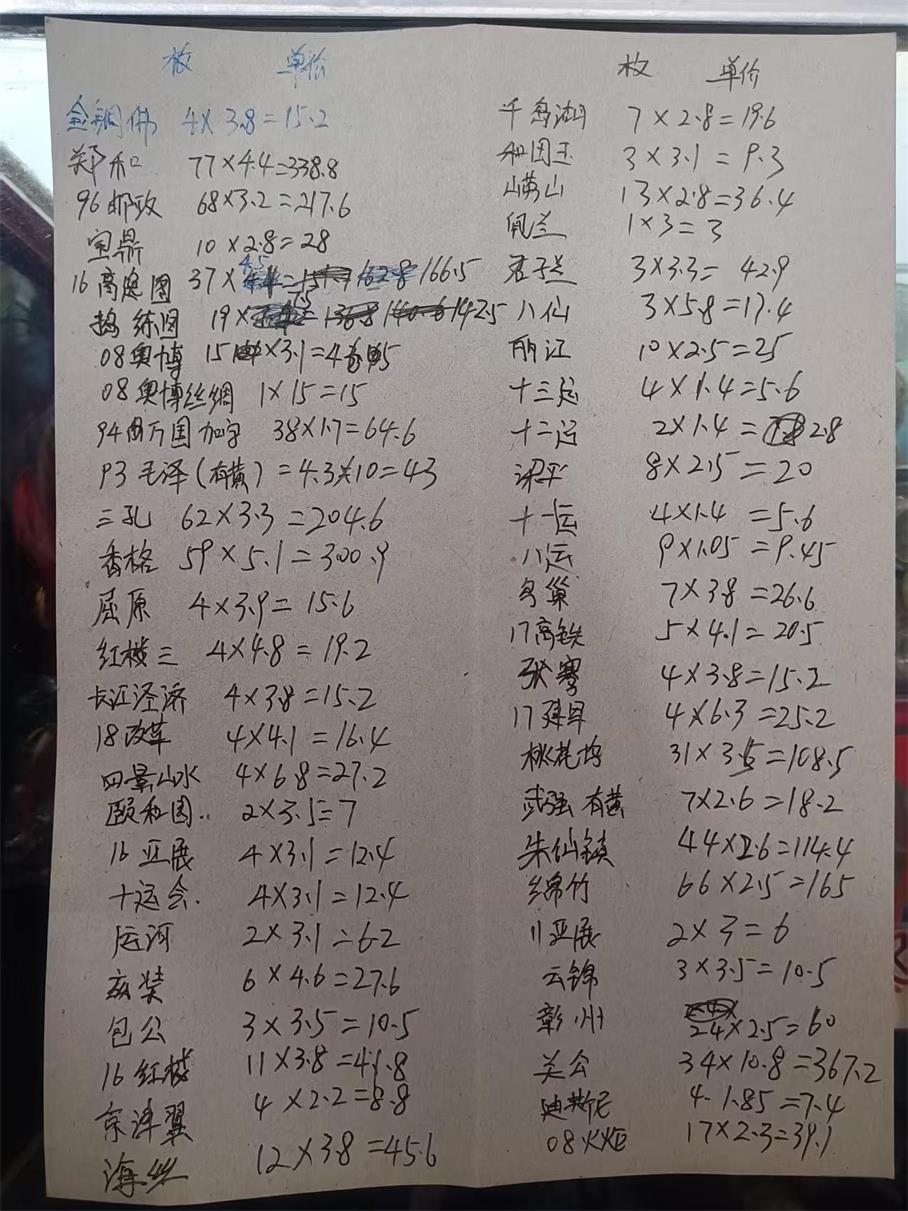 枚 单价
金铜佛 4×3.8=15.2
郑和 77×4.4=338.8
96邮政 68×3.2=217.6
宝鼎 10×2.8=28
16高逸图 37×4.5 162.8 166.5
捣练图 19×7.5 142.5
08奥博 15×3.1=46.5
08奥博丝绸 1×15=15
94万国加字 38×1.7=64.6
93毛泽(有黄)=4.3×10=43
三孔 62×3.3=204.6
香格 59×5.1=300.9
屈原 4×3.9=15.6
红楼三 4×4.8=19.2
长江经济 4×3.8=15.2
18改革 4×4.1=16.4
四景山水 4×6.8=27.2
颐和园.. 2×3.5=7
16亚展 4×3.1=12.4
十运会. 4×3.1=12.4
运河 2×3.1=6.2
玄奘 6×4.6=27.6
包公 3×3.5=10.5
16红楼 11×3.8=41.8
京津翼 4×2.2=8.8
海丝 12×3.8=45.6
枚 单价
千岛湖 7×2.8=19.6
和田玉 3×3.1=9.3
崂山 13×2.8=36.4
佩兰 1×3=3
君子兰 3×3.3=42.9
八仙 3×5.8=17.4
丽江 10×2.5=25
十三运 4×1.4=5.6
十二运 2×1.4=2.8
梁平 8×2.5=20
十一运 4×1.4=5.6
八运 9×1.05=9.45
鸟巢 7×3.8=26.6
17高铁 5×4.1=20.5
张骞 4×3.8=15.2
17拜年 4×6.3=25.2
桃花坞 31×3.5=108.5
武强有黄 7×2.6=18.2
朱仙镇 44×2.6=114.4
绵竹 66×2.5=165
11亚展 2×3=6
云锦 3×3.5=10.5
彰州 24×2.5=60
关公 34×10.8=367.2
迪斯尼 4.1.85=7.4
08火炬 17×2.3=39.1